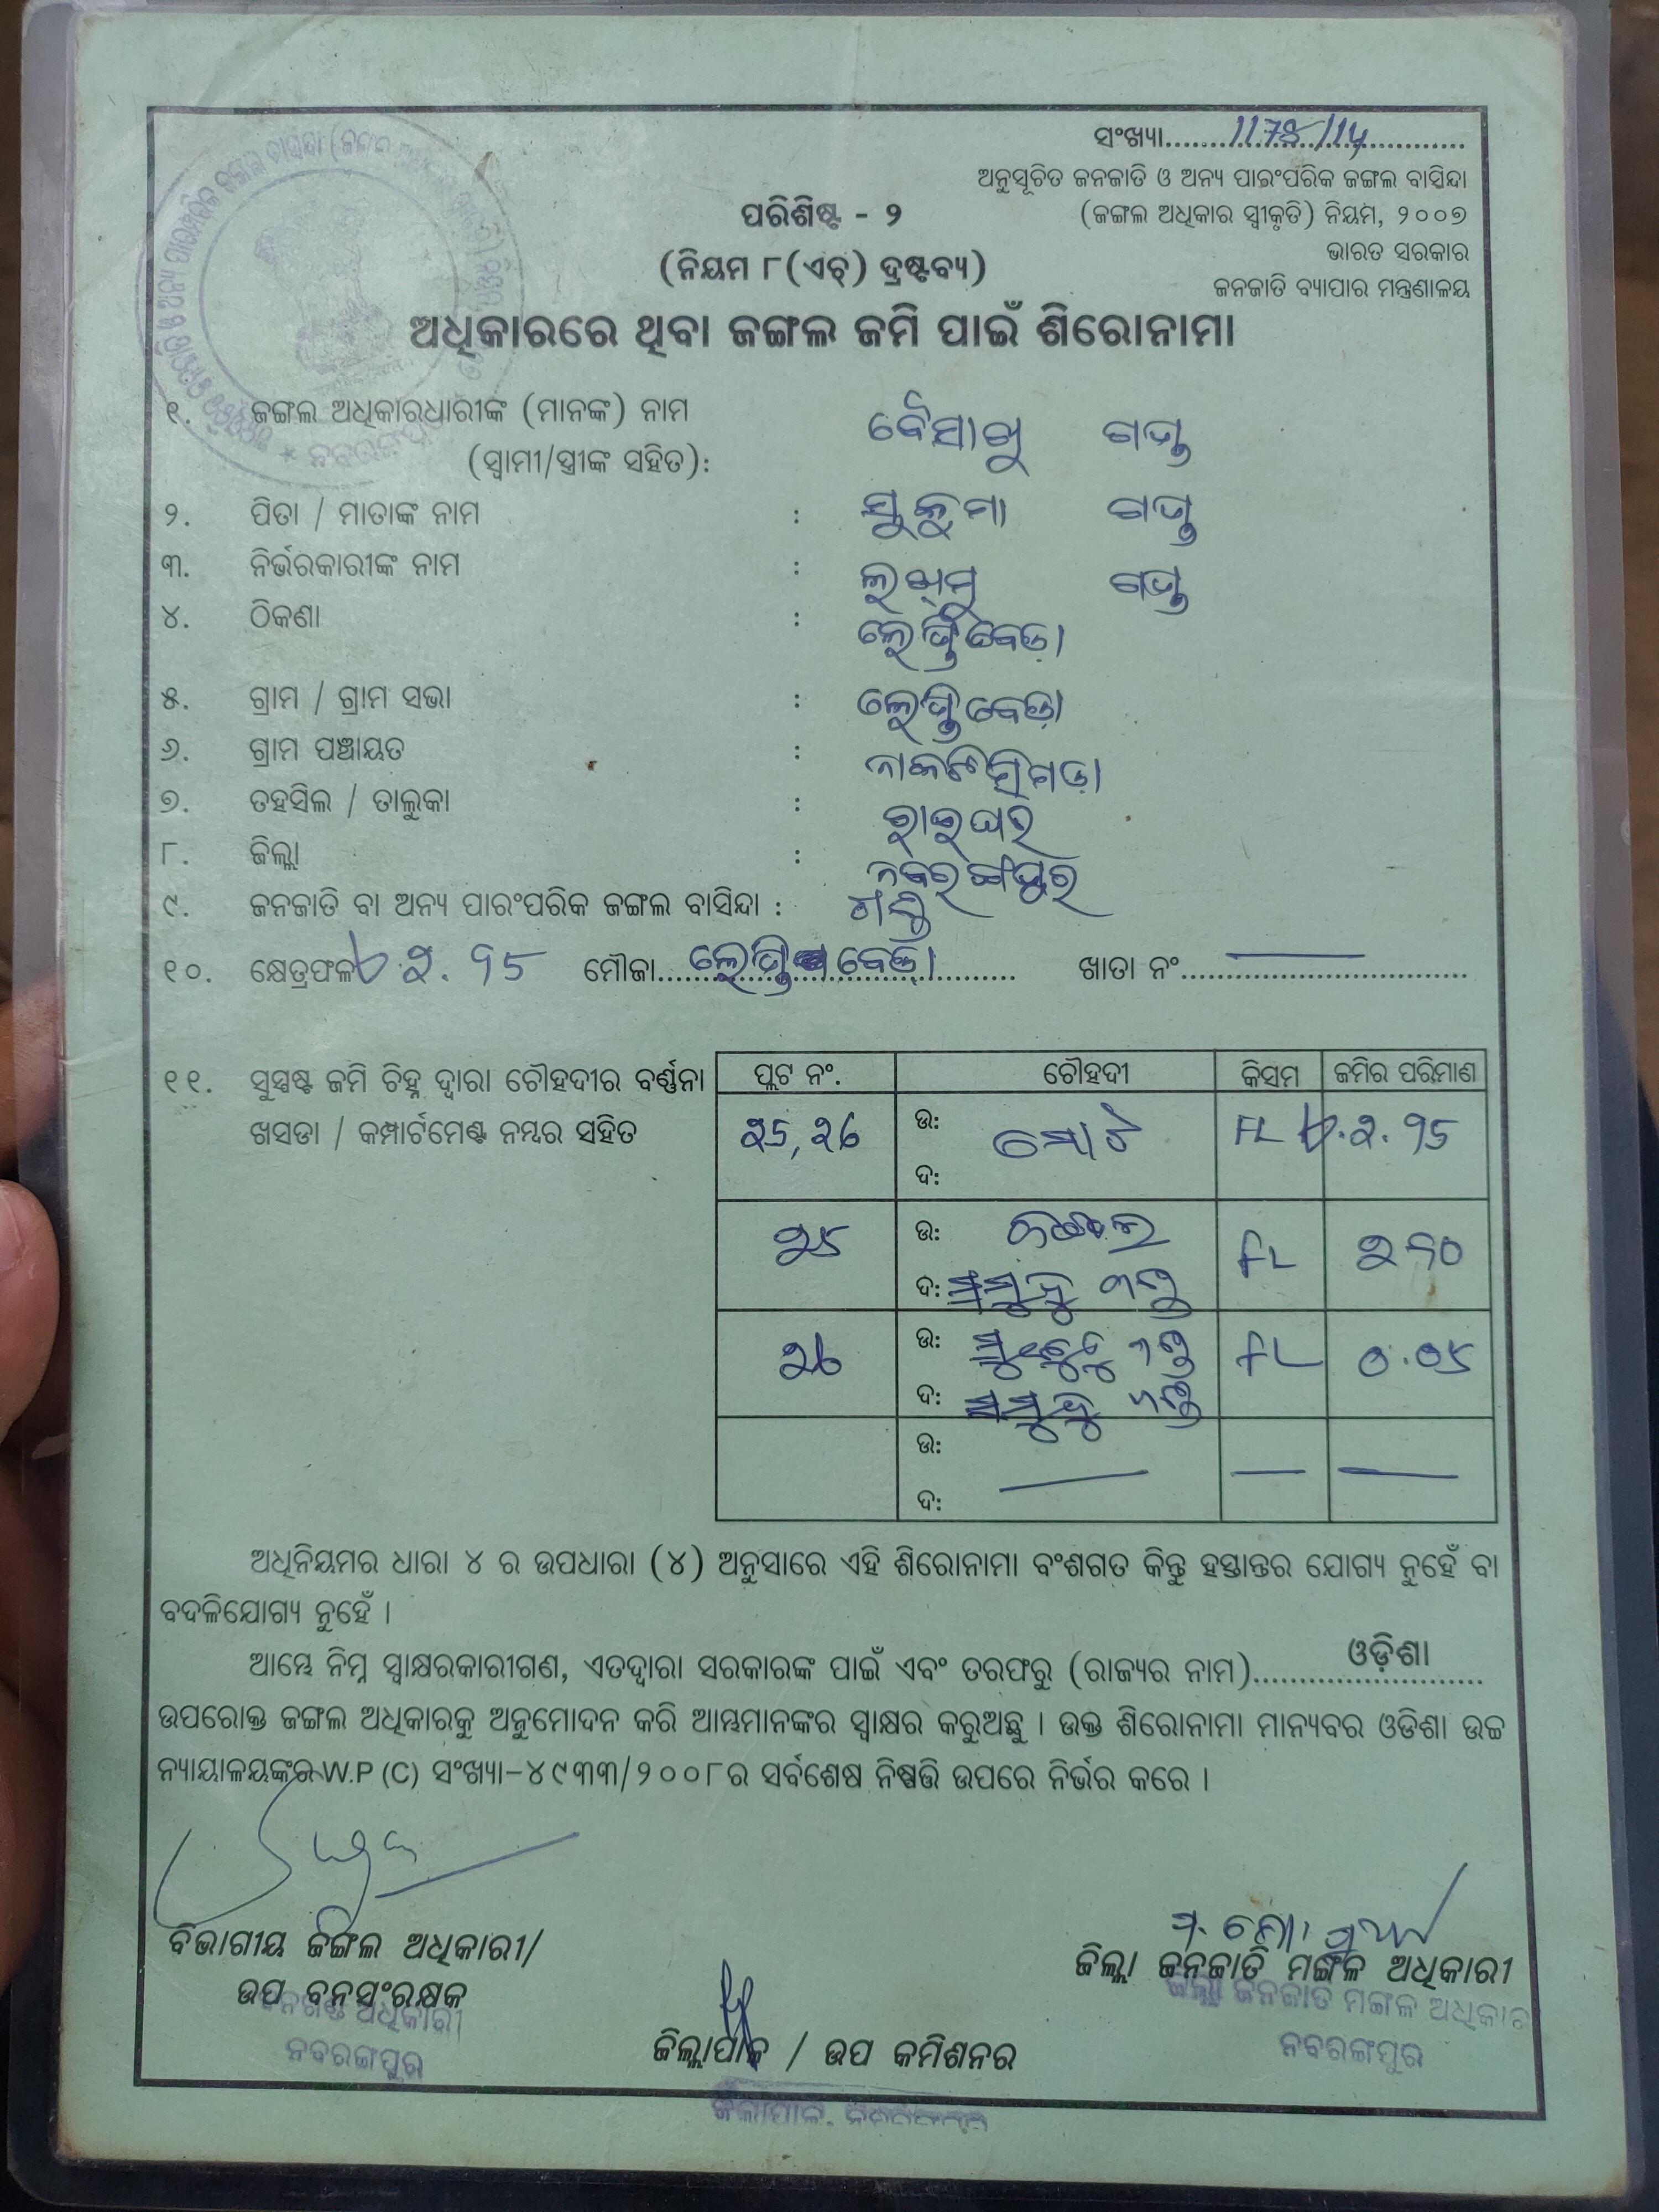 ସଂଖ୍ୟା.......1178/14............
ଅନୁସୂଚିତ ଜନଜାତି ଓ ଅନ୍ୟ ପାରଂପରିକ ଜଙ୍ଗଲ ବାସିନ୍ଦା
ପରିଶିଷ୍ଟ - ୨ (ଜଙ୍ଗଲ ଅଧିକାର ସ୍ୱୀକୃତି) ନିୟମ, ୨୦୦୭
ଭାରତ ସରକାର
(ନିୟମ ୮(ଏଚ୍) ଦ୍ରଷ୍ଟବ୍ୟ)
ଜନଜାତି ବ୍ୟାପାର ମନ୍ତ୍ରଣାଳୟ
ଅଧିକାରରେ ଥିବା ଜଙ୍ଗଲ ଜମି ପାଇଁ ଶିରୋନାମା
୧. ଜଙ୍ଗଲ ଅଧିକାରଧାରୀଙ୍କ (ମାନଙ୍କ) ନାମ ବୈସାଖୁ ଗଣ୍ଡ
(ସ୍ୱାମୀ/ସ୍ତ୍ରୀଙ୍କ ସହିତ):
୨. ପିତା / ମାତାଙ୍କ ନାମ : ସୁକୁମା ଗଣ୍ଡ
୩. ନିର୍ଭରକାରୀଙ୍କ ନାମ : ଲଖ୍ମୁ ଗଣ୍ଡ
୪. ଠିକଣା :
୫. ଗ୍ରାମ / ଗ୍ରାମ ସଭା :
୬. ଗ୍ରାମ ପଞ୍ଚାୟତ :
୭. ତହସିଲ / ତାଲୁକା : ରାଇଘର
୮. ଜିଲ୍ଲା : ନବରଙ୍ଗପୁର
୯. ଜନଜାତି ବା ଅନ୍ୟ ପାରଂପରିକ ଜଙ୍ଗଲ ବାସିନ୍ଦା : ଗଣ୍ଡ
୧୦. କ୍ଷେତ୍ରଫଳ ୨.୨୫ ମୌଜା.......... ଖାତା ନଂ..........
୧୧. ସୁସ୍ପଷ୍ଟ ଜମି ଚିହ୍ନ ଦ୍ୱାରା ଚୌହଦୀର ବର୍ଣ୍ଣନା
ଖସଡା / କମ୍ପାର୍ଟମେଣ୍ଟ ନମ୍ବର ସହିତ
ପ୍ଲଟ ନଂ. ଚୌହଦୀ କିସମ ଜମିର ପରିମାଣ
25, 26 ଉ: ମୋଟ FL
ଦ:
25 ଉ: ଜଙ୍ଗଲ FL
ଦ: ଗଣ୍ଡ
26 ଉ: ଗଣ୍ଡ FL 0.05
ଦ: ଗଣ୍ଡ
ଉ:
ଦ:
ଅଧିନିୟମର ଧାରା ୪ ର ଉପଧାରା (୪) ଅନୁସାରେ ଏହି ଶିରୋନାମା ବଂଶଗତ କିନ୍ତୁ ହସ୍ତାନ୍ତର ଯୋଗ୍ୟ ନୁହେଁ ବା
ବଦଳିଯୋଗ୍ୟ ନୁହେଁ ।
ଆମ୍ଭେ ନିମ୍ନ ସ୍ୱାକ୍ଷରକାରୀଗଣ, ଏତଦ୍ୱାରା ସରକାରଙ୍କ ପାଇଁ ଏବଂ ତରଫରୁ (ରାଜ୍ୟର ନାମ)..........ଓଡ଼ିଶା..........
ଉପରୋକ୍ତ ଜଙ୍ଗଲ ଅଧିକାରକୁ ଅନୁମୋଦନ କରି ଆମ୍ଭମାନଙ୍କର ସ୍ୱାକ୍ଷର କରୁଅଛୁ । ଉକ୍ତ ଶିରୋନାମା ମାନ୍ୟବର ଓଡିଶା ଉଚ୍ଚ
ନ୍ୟାୟାଳୟଙ୍କର W.P (C) ସଂଖ୍ୟା-୪୯୩୩/୨୦୦୮ର ସର୍ବଶେଷ ନିଷ୍ପତ୍ତି ଉପରେ ନିର୍ଭର କରେ ।
ବିଭାଗୀୟ ଜଙ୍ଗଲ ଅଧିକାରୀ/
ଉପ ବନସଂରକ୍ଷକ
ବନଖଣ୍ଡ ଅଧିକାରୀ
ନବରଙ୍ଗପୁର
ଜିଲ୍ଲାପାଳ / ଉପ କମିଶନର
ଜିଲ୍ଲାପାଳ, ନବରଙ୍ଗପୁର
ଜିଲ୍ଲା ଜନଜାତି ମଙ୍ଗଳ ଅଧିକାରୀ
ଜିଲ୍ଲା ଜନଜାତି ମଙ୍ଗଳ ଅଧିକାରୀ
ନବରଙ୍ଗପୁର